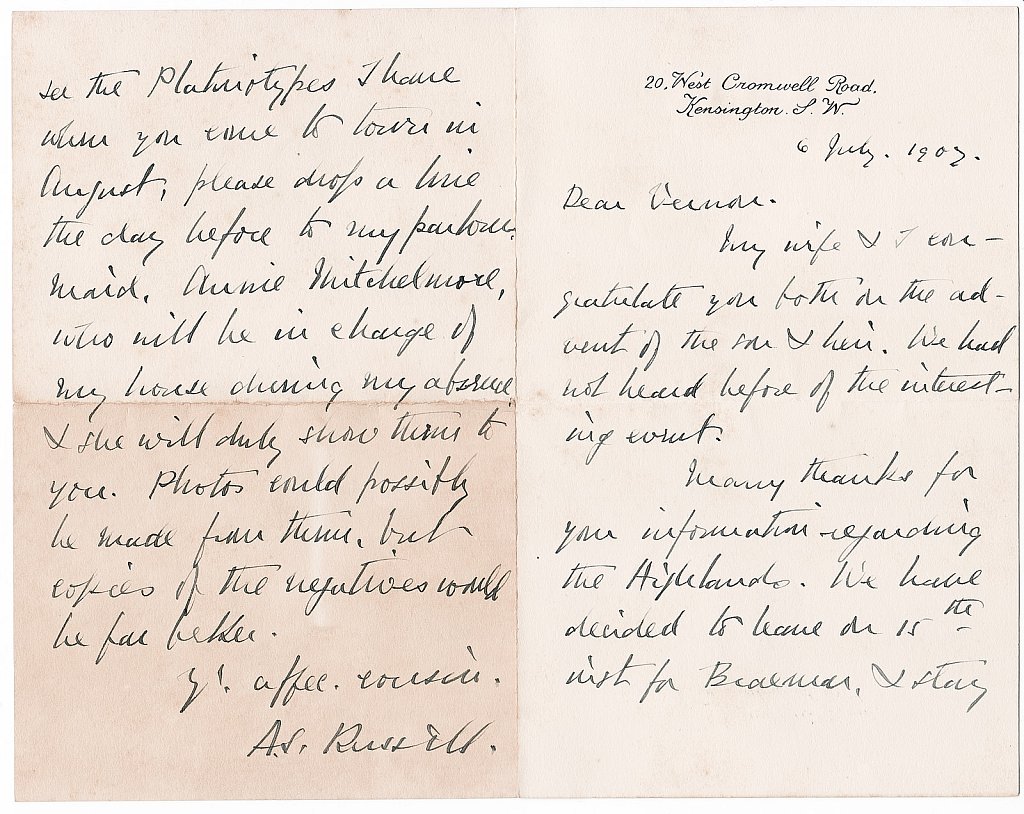 20, West Cromwell Road,
Kensington. S. W.
6 July. 1907.
Dear Vernon.
My wife & I con-
gratulate you both on the ad-
vent of the son & heir. We had
not heard before of the interest-
ing event.
Many thanks for
your information regarding
the Highlands. We have
decided to leave on 15th
inst for Braemar, & stay
see the Platinotypes I have
when you come to town in
August, please drop a line
the day before to my parlour-
maid, Annie Mitchelmore,
who will be in charge of
my house during my absence
& she will duly show them to
you. Photos could possibly
be made from them, but
copies of the negatives would
be far better.
Yr. affec. cousin.
A.S. Russell.